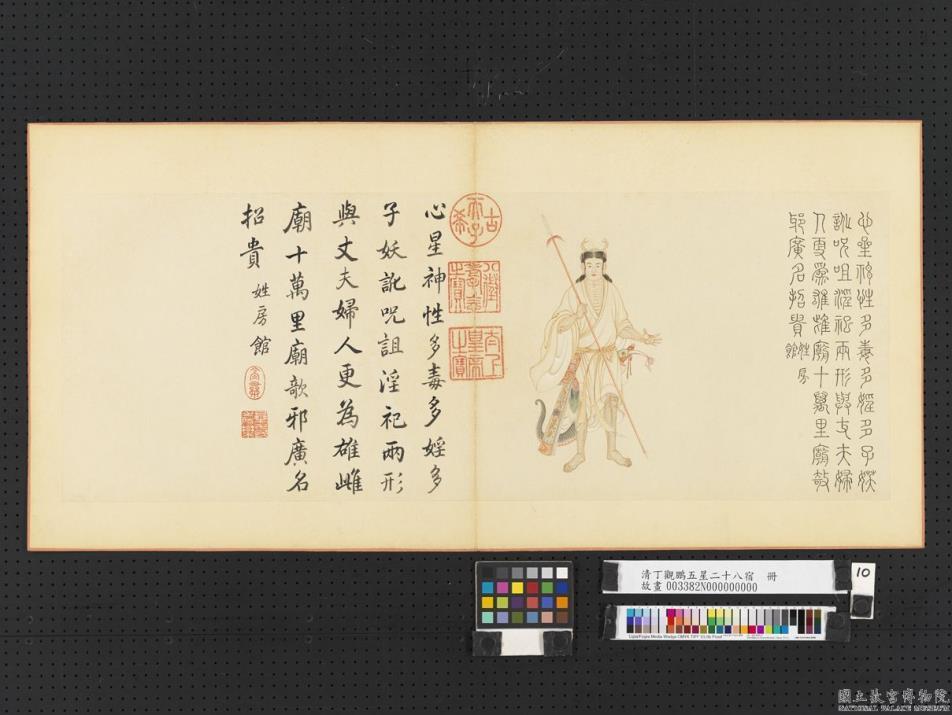 心星神性多毒多婬多子妖
訛呪咀淫祀兩形與丈夫婦
人更為雄雌廟十萬里廟歌
邪廣名招貴姓房
館
古希天子
八徵耄念之寶
太上皇帝之寶
心星神性多毒多婬多
子妖訛呪詛淫祀兩形
與丈夫婦人更為雄雌
廟十萬里廟歌邪廣名
招貴 姓房館
清丁觀鵬五星二十八宿 冊
故畫 003382N000000000
10
國立故宮博物院
NATIONAL PALACE MUSEUM